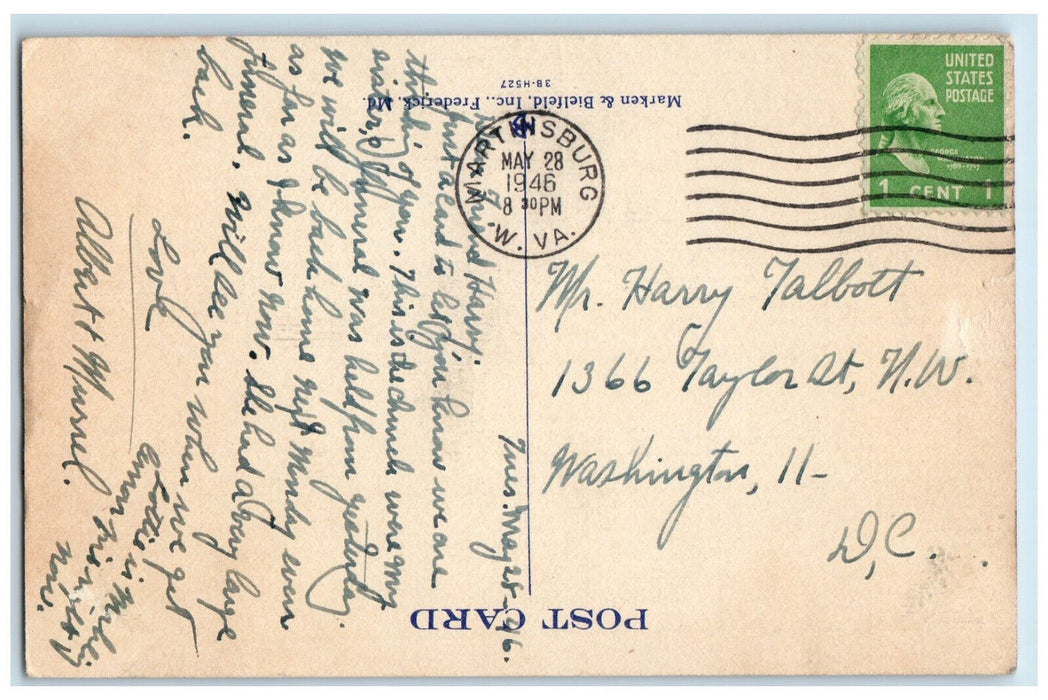 POST CARD
Marken & Bielfeld, Inc., Frederick, Md.
3B-H527
UNITED
STATES
POSTAGE
GEORGE
WASHINGTON
1 CENT 1
MARTINSBURG
MAY 28
1946
8 30 PM
W. VA.
Mr. Harry Talbott
1366 Taylor St, N.W.
Washington, 11-
D,C.
Tues. May 28-46.
friend Harry.
Just a card to let you know we are
thinking of you. This is the church were my
sister's funeral was held from yesterday.
We will be back home next Monday even
as far as I know now. She had a very large
funeral. Will see you when we get
back.
Love
Albert & Muriel.
Lottie is
now.